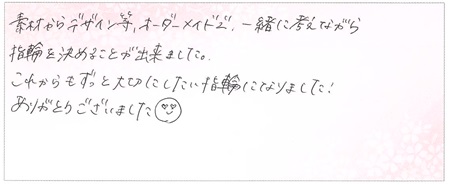 素材からデザイン等、オーダーメイドで、一緒に考えながら
指輪を決めることが出来ました。
これからもずっと大切にしたい指輪になりました!
ありがとうございました